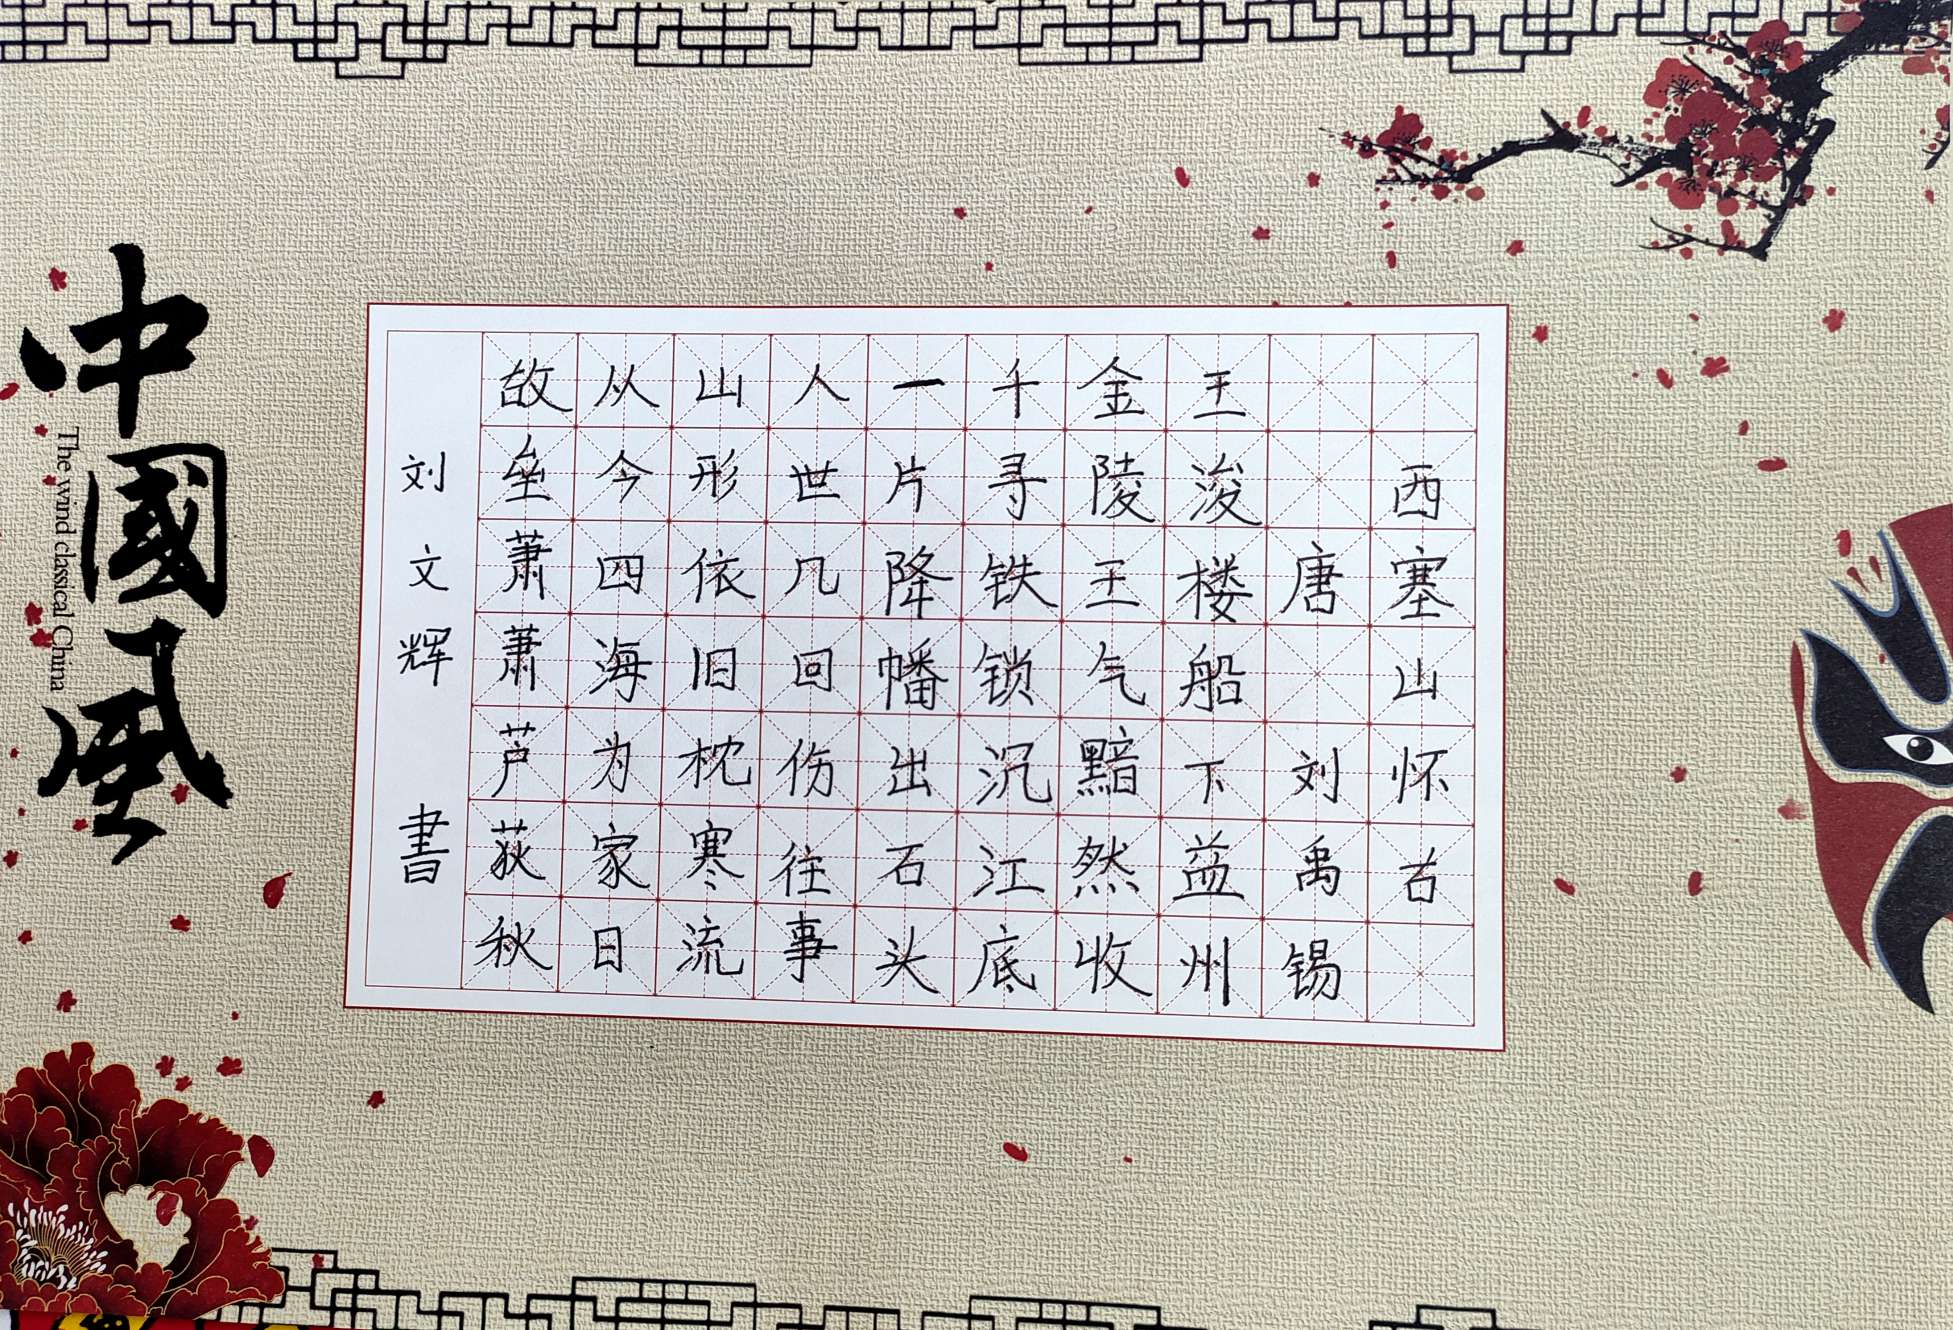 西塞山怀古
唐 刘禹锡
王浚楼船下益州
金陵王气黯然收
千寻铁锁沉江底
一片降幡出石头
人世几回伤往事
山形依旧枕寒流
从今四海为家日
故垒萧萧芦荻秋
刘文辉 書
中國風
The wind classical China